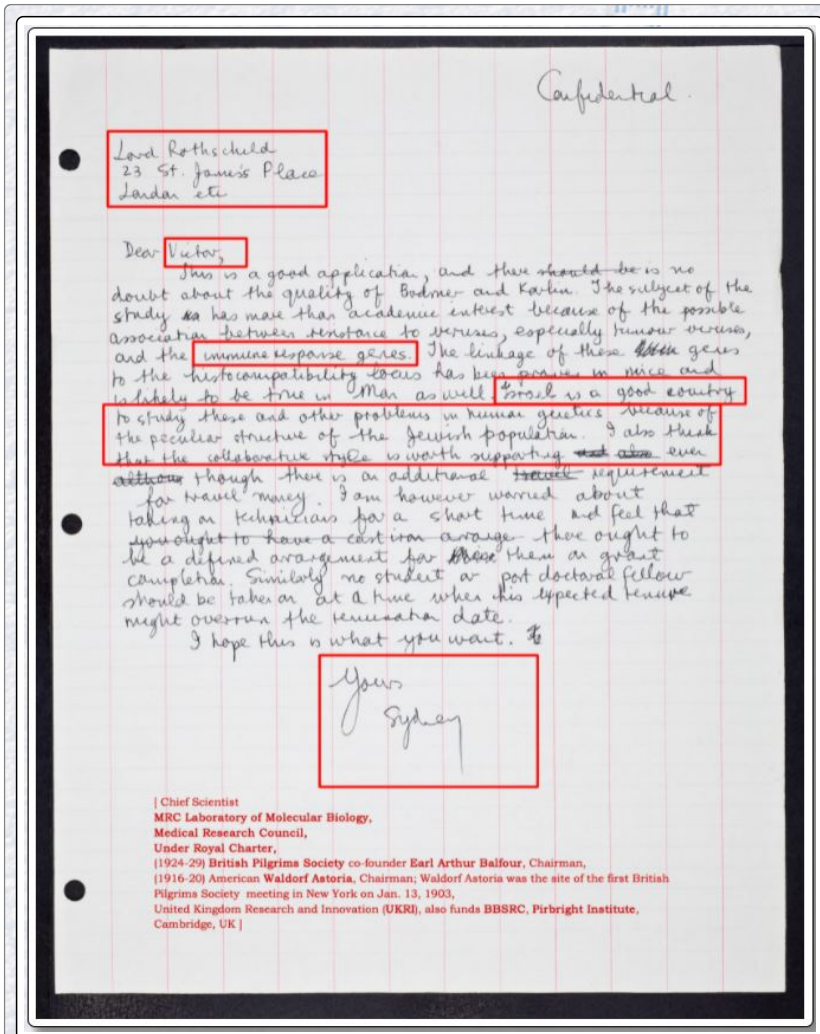 Confidential.
Lord Rothschild
23 St. James's Place
London etc
Dear Victor,
This is a good application, and there should be is no
doubt about the quality of Bodmer and Karlin. The subject of the
study has more than academic interest because of the possible
association between resistance to viruses, especially tumour viruses,
and the immune response genes. The linkage of these genes
to the histocompatibility locus has been proven in mice and
is likely to be true in Man as well. Israel is a good country
to study these and other problems in human genetics because of
the peculiar structure of the Jewish population. I also think
that the collaborative style is worth supporting and also even
although though there is an additional travel requirement
for travel money. I am however worried about
taking on technicians for a short time and feel that
you ought to have a cast iron arrange there ought to
be a defined arrangement for them on grant
completion. Similarly no student or post doctoral fellow
should be taken on at a time when his expected tenure
might overrun the termination date.
I hope this is what you want.
Yours
Sydney
| Chief Scientist
MRC Laboratory of Molecular Biology,
Medical Research Council,
Under Royal Charter,
(1924-29) British Pilgrims Society co-founder Earl Arthur Balfour, Chairman,
(1916-20) American Waldorf Astoria, Chairman; Waldorf Astoria was the site of the first British
Pilgrims Society meeting in New York on Jan. 13, 1903,
United Kingdom Research and Innovation (UKRI), also funds BBSRC, Pirbright Institute,
Cambridge, UK ]